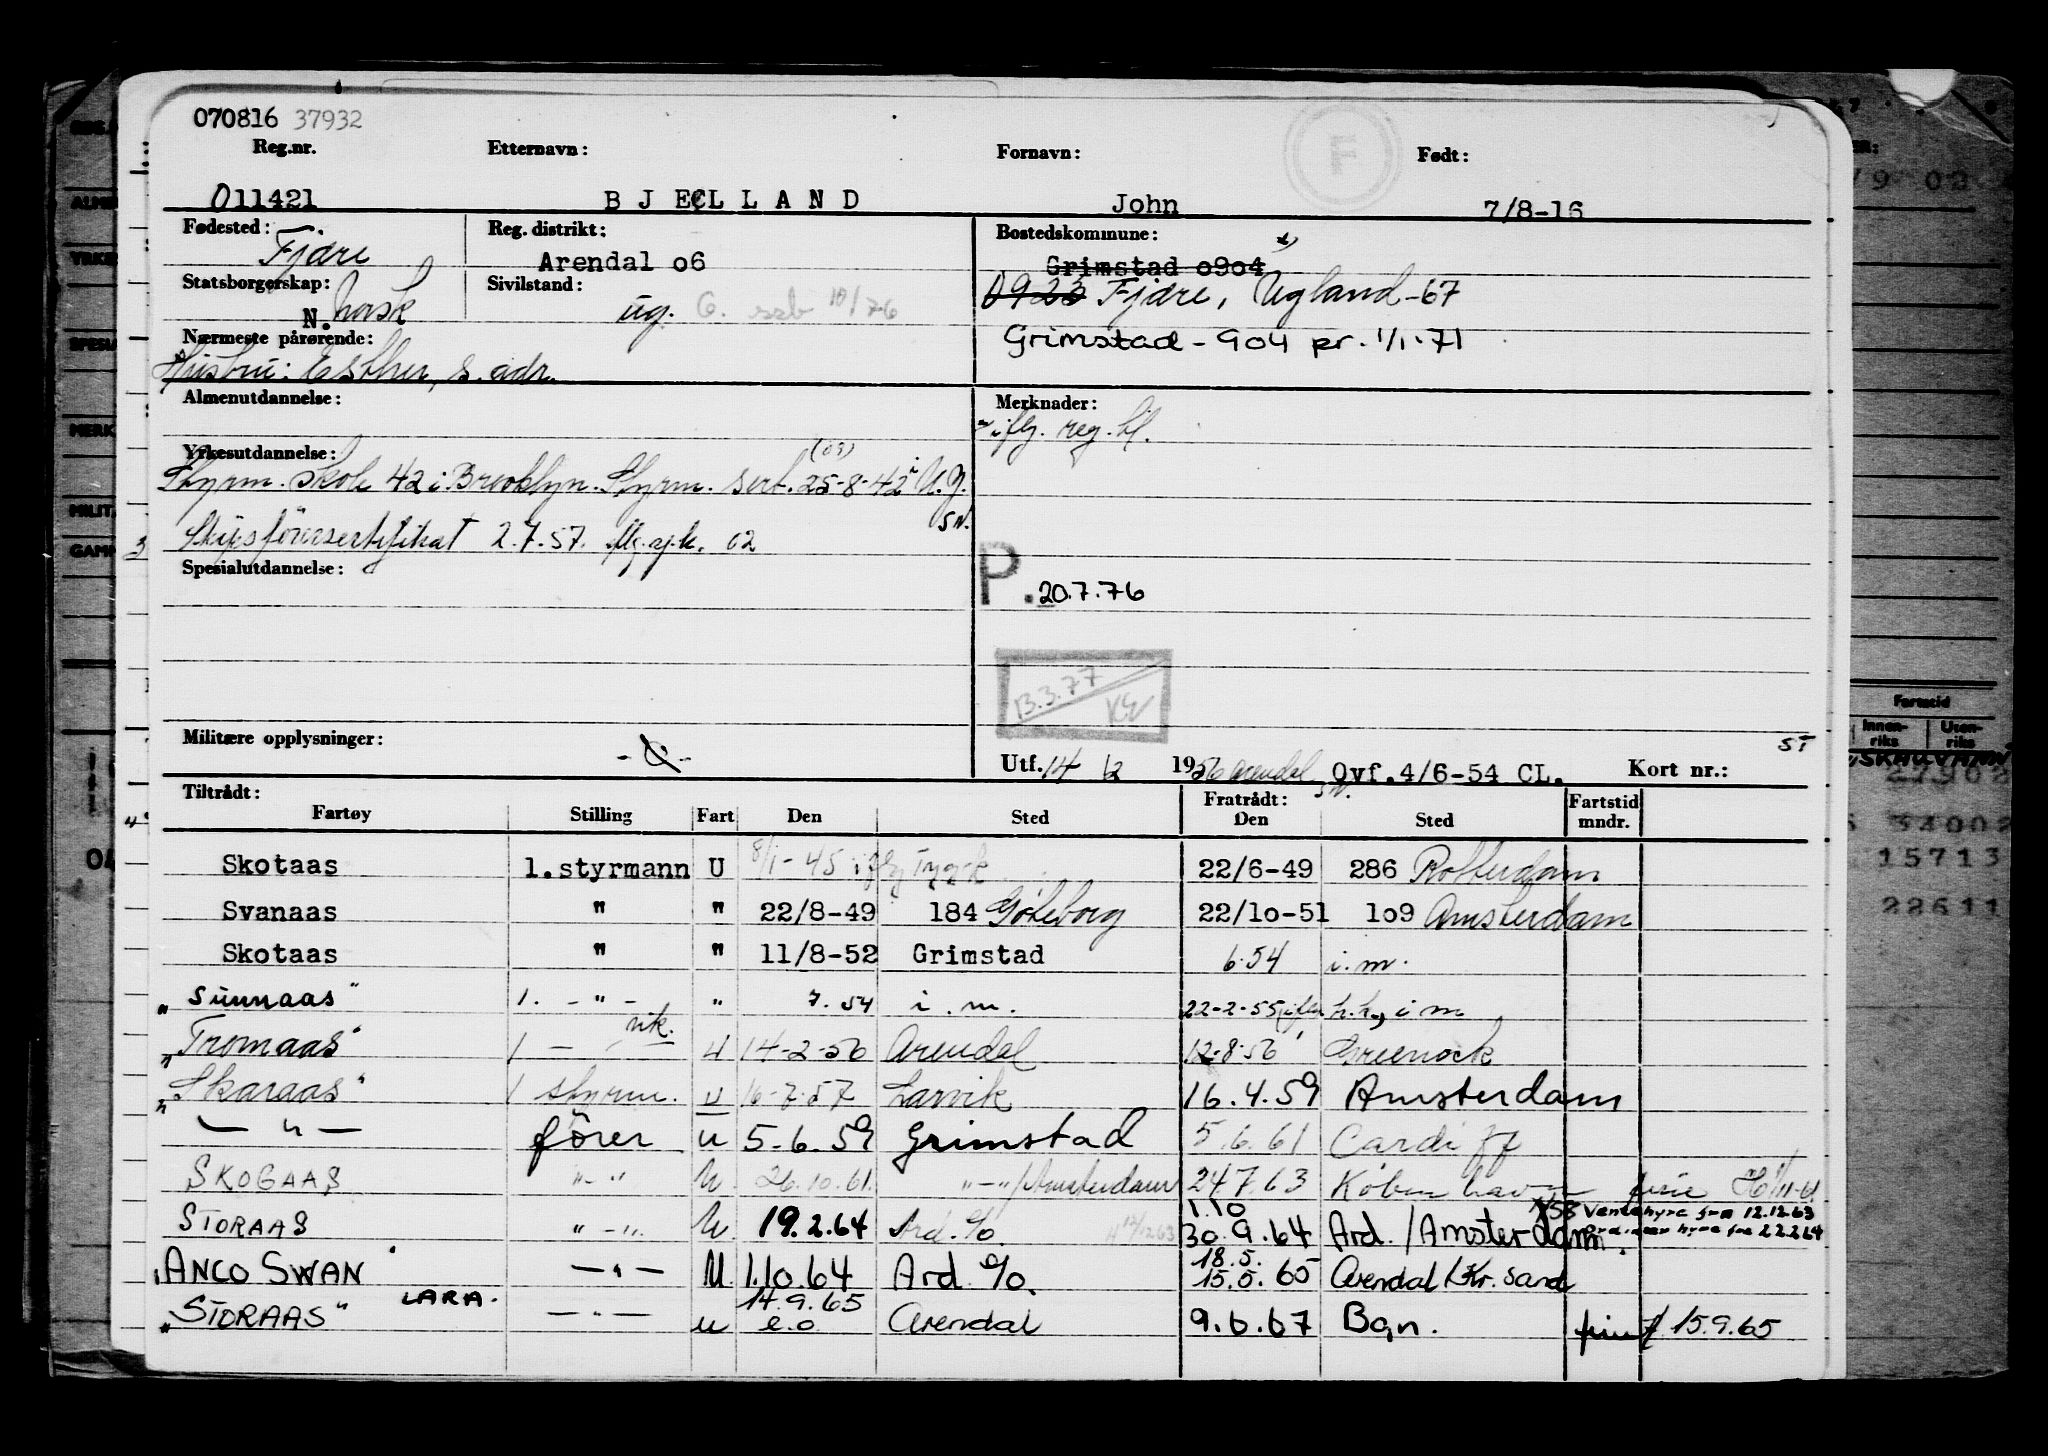 070816 37932
Reg.nr. Etternavn: Fornavn: Født:
011421 BJELLAND John 7/8-16
Fødested: Fjære Reg. distrikt: Arendal o6 Bostedskommune: Grimstad o9o4
Statsborgerskap: N. norsk Sivilstand: ug. G. 10/76 0923 Fjære, Ugland-67
Nærmeste pårørende: Grimstad - 904 pr. 1/1-71
Hustru: Esther, s. adr.
Almenutdannelse: Merknader:
iflg. reg. bl.
Yrkesutdannelse: (09)
Styrm. skole 42 i Brooklyn. Styrm. sert. 25-8-42 i N.Y.
SN.
3 Skipsførersertifikat 2.7.57. 02
Spesialutdannelse:
P. 20.7.76
13.3.77
Militære opplysninger:
ST
Utf. 14 2 1956 Arendal SN. Ovf. 4/6-54 CL. Kort nr.:
Tiltrådt: Fratrådt: Fartstid
Fartøy Stilling Fart Den Sted Den Sted mndr.
Skotaas 1.styrmann U 8/1-45 22/6-49 286 Rotterdam
Svanaas " " 22/8-49 184 Gøteborg 22/10-51 109 Amsterdam
Skotaas " " 11/8-52 Grimstad 6.54 i.m.
"Sunnaas" 1. - " - " 7. 54 i.m. 22-2-55 h.h., i m
"Tromaas" 1 - vik. U 14-2-56 Arendal 12-8-56 Greenock
"Skaraas" 1 styrm. U 16-7-57 Larvik 16.4.59 Amsterdam
— " — fører u 5-6.59 Grimstad 5.6.61 Cardiff
SKOGAAS " - " U 26.10.61. " - "/Amsterdam 24.7.63 København ferie
STORAAS " - " U 19.2.64 Ard. %. 1.10 30.9.64 Ard. /Amsterdam. Ventehyre fra 12.12.63
Ordinær hyre fra 22.2.64
"ANCO SWAN" — " — U 1.10.64 Ard %. 18.5. 15.5.65 Arendal / Kr. sand
"STORAAS" LARA. — " — u 14.9.65 e.o. Arendal 9.6.67 Bgn. 15.9.65
Fartstid
Innen-riks Uten-riks
27902
34002
15713
22611